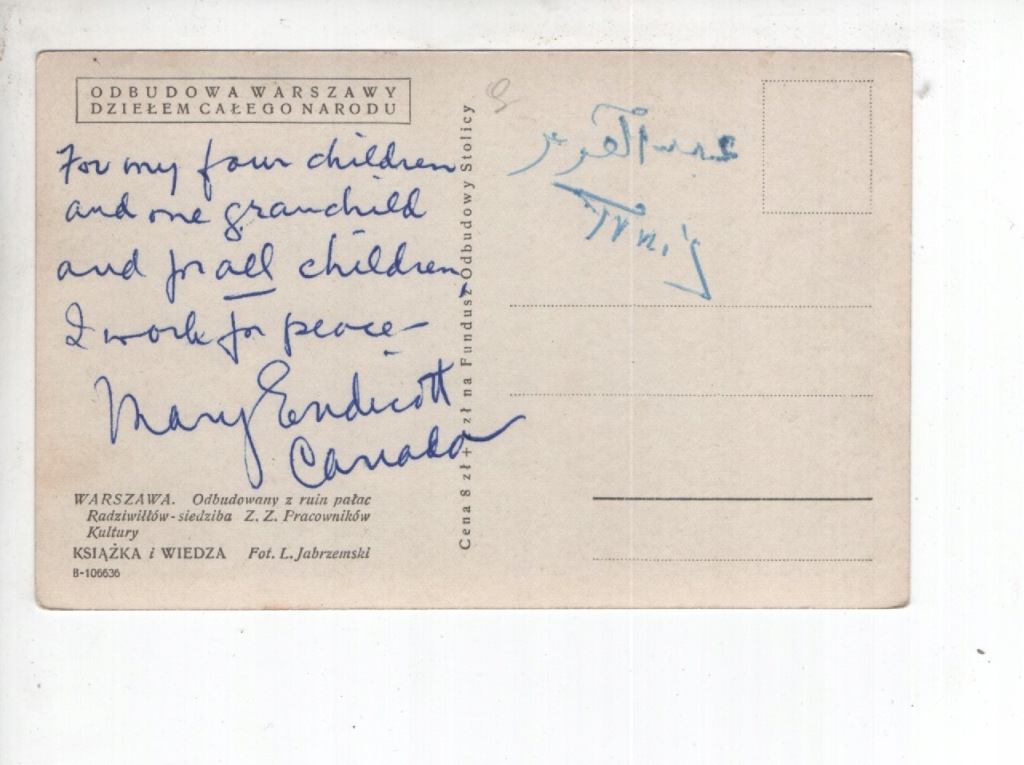 ODBUDOWA WARSZAWY
DZIEŁEM CAŁEGO NARODU
For my four children
and one granchild
and for all children,
I work for peace—
Mary Endicott
Canada
WARSZAWA. Odbudowany z ruin pałac
Radziwiłłów-siedziba Z. Z. Pracowników
Kultury
KSIĄŻKA i WIEDZA Fot. L. Jabrzemski
B-106636
Cena 8 zł + zł na Fundusz Odbudowy Stolicy